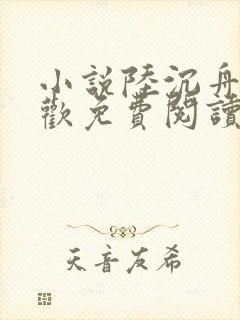 小說陸沉舟
歡免費閱讀
天音友希